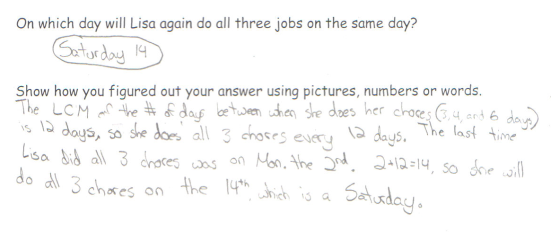 On which day will Lisa again do all three jobs on the same day?
Saturday 14
Show how you figured out your answer using pictures, numbers or words.
The LCM of the # of days between when she does her chores (3, 4, and 6 days)
is 12 days, so she does all 3 chores every 12 days. The last time
Lisa did all 3 chores was on Mon. the 2nd. 2+12=14, so she will
do all 3 chores on the 14th, which is a Saturday.